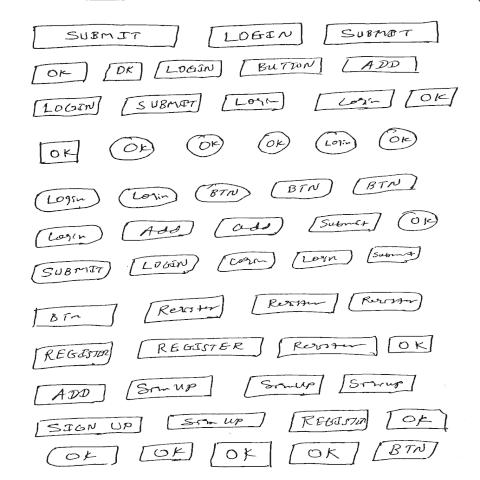 SUBMIT LOGIN SUBMIT
OK OK LOGIN BUTTON ADD
LOGIN SUBMIT Login Login OK
OK OK OK OK Login OK
Login Login BTN BTN BTN
Login Add add Submit OK
SUBMIT LOGIN Login Login Submit
BTn Register Register Register
REGISTER REGISTER Register OK
ADD SignUp SignUp Signup
SIGN UP Sign Up REGISTER OK
OK OK OK OK BTN